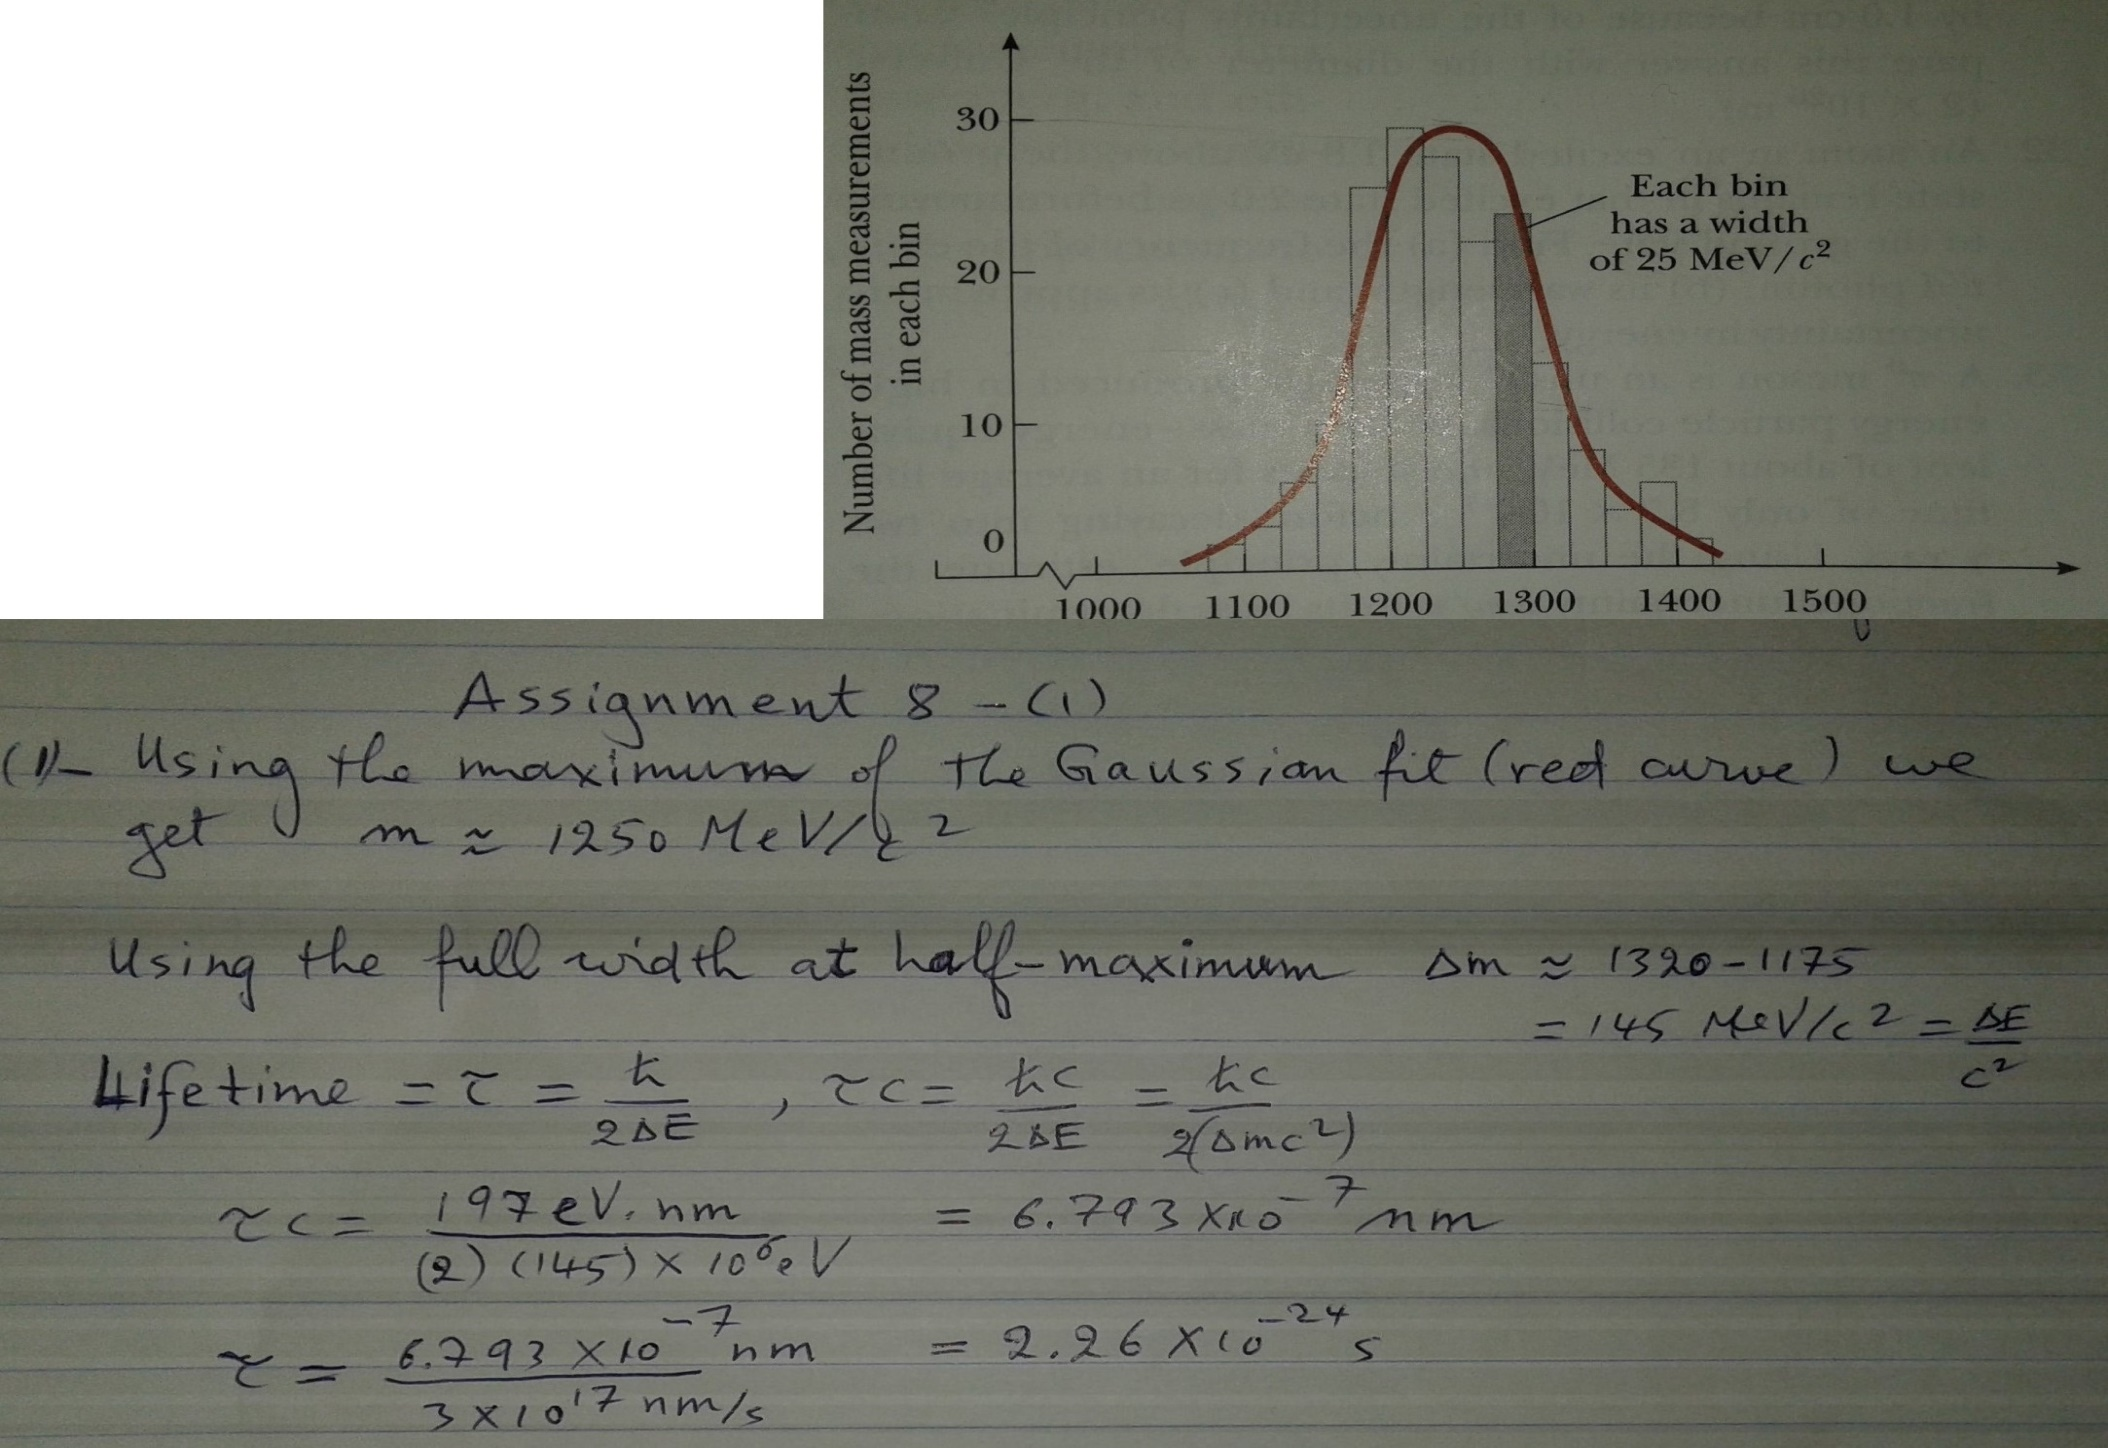 Number of mass measurements
in each bin
30
20
10
0
Each bin
has a width
of 25 MeV/c²
1000 1100 1200 1300 1400 1500
Assignment 8 – (1)
(1)– Using the maximum of the Gaussian fit (red curve) we
get m ≈ 1250 MeV/c²
Using the full width at half-maximum Δm ≈ 1320-1175
= 145 MeV/c² = ΔE/c²
Lifetime = τ = ħ/2ΔE , τc = ħc/2ΔE = ħc/2(Δmc²)
τc = 197 eV.nm/(2)(145)×10⁶eV = 6.793×10⁻⁷ nm
τ = 6.793×10⁻⁷ nm/3×10¹⁷ nm/s = 2.26×10⁻²⁴ s